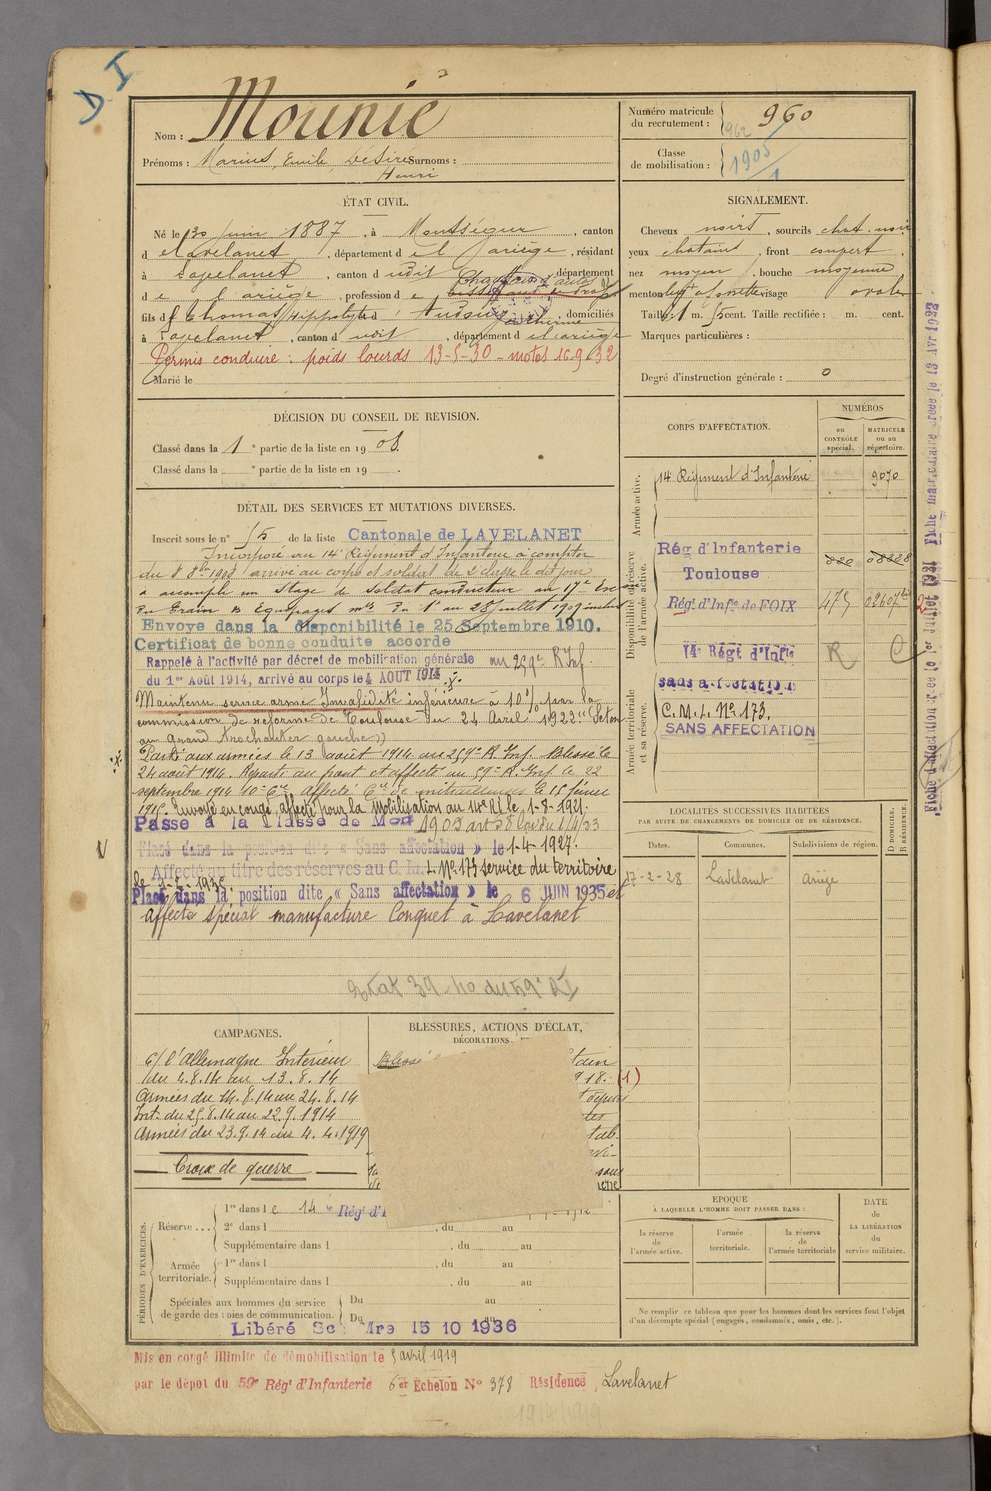 D I
Nom : Mounié
Prénoms : Marius, Emile, Désiré Surnoms :
Henri
Numéro matricule du recrutement : 960
962
Classe de mobilisation : 1905/1
ÉTAT CIVIL.
Né le 30 juin 1887, à Montségur, canton
d e Lavelanet, département d e l'ariège, résidant
à Lavelanet, canton d udit, département
d e l'ariège, profession d e Chauffeur d'autos
fils d e Thomas Hippolyte et d domiciliés
à Lavelanet, canton d udit, département d e l'ariège
Permis conduire : poids lourds 13-5-30 - motos 16.9.32
Marié le
SIGNALEMENT.
Cheveux noirs, sourcils chat. noir
yeux chatain, front couvert
nez moyen, bouche moyenne
menton visage ovale
Taille 1 m. cent. Taille rectifiée : m. cent.
Marques particulières :
Degré d'instruction générale : 0
DÉCISION DU CONSEIL DE REVISION.
Classé dans la 1e partie de la liste en 1908.
Classé dans la e partie de la liste en 19 .
DÉTAIL DES SERVICES ET MUTATIONS DIVERSES.
Inscrit sous le n° 15 de la liste Cantonale de LAVELANET
Incorporé au 14e Régiment d'Infanterie à compter
du 8 8bre 1908 arrivé au corps et soldat de 2e classe le dit jour
a accompli un stage de soldat conducteur au 17e Escon
du Train des Equipages mres du 1er au 28 juillet 1909 inclus
Envoyé dans la disponibilité le 25 Septembre 1910.
Certificat de bonne conduite accordé
Rappelé à l'activité par décret de mobilisation générale au 259e R Inf.
du 1er Août 1914, arrivé au corps le 4 AOUT 1914
Maintenu service armé Invalidité inférieure à 10% par la
commission de réforme de Toulouse du 24 Avril 1922
au grand trochanter gauche))
Parti aux armées le 13 août 1914 au 259e R. Inf. Blessé le
24 août 1914. Reparti au front et affecté au 59e R. Inf. le 22
septembre 1914 10e Cie Affecté Cie de mitrailleuses le 15 février
1916. Envoyé en congé, affecté pour la mobilisation au 14e RI le 1-8-1921.
Passé à la Classe de Mob 1905
Placé dans la position dite « Sans affectation » le 1-4-1927.
Affecté au titre des réserves au C. M. L. No 173 service du territoire
Placé dans la position dite « Sans affectation » le 6 JUIN 1935 et
affecté spécial manufacture Conquet à Lavelanet
CORPS D'AFFECTATION.
NUMÉROS
au CONTRÔLE spécial.
MATRICULE ou au répertoire.
Armée active.
14 Régiment d'Infanterie 9070
Disponibilité ou réserve de l'armée active.
Rég d'Infanterie
Toulouse
Régt d'Infie de FOIX
14e Régt d'Infie R
Armée territoriale et sa réserve.
sans affectation
C. M. L. No 173.
SANS AFFECTATION
LOCALITÉS SUCCESSIVES HABITÉES
PAR SUITE DE CHANGEMENTS DE DOMICILE OU DE RÉSIDENCE.
Dates. Communes. Subdivisions de région. D DOMICILE. R RÉSIDENCE.
17-2-28 Lavelanet Ariège
CAMPAGNES.
C/ l'Allemagne Intérieur
du 4.8.14 au 13.8.14
Armées du 14.8.14 au 24.8.14
Int. du 25.8.14 au 22.9.1914
Armées du 23.9.14 au 4.4.1919
Croix de guerre
BLESSURES, ACTIONS D'ÉCLAT,
DÉCORATIONS
Blessé
(1)
PÉRIODES D'EXERCICES.
Réserve .... 1re dans l e 14e Régt d'I
2e dans l , du au
Supplémentaire dans l , du au
Armée territoriale. 1re dans l , du au
Supplémentaire dans l , du au
Spéciales aux hommes du service de garde des voies de communication. Du au
Du au
Libéré Sce Mre 15 10 1936
EPOQUE
A LAQUELLE L'HOMME DOIT PASSER DANS :
la réserve de l'armée active.
l'armée territoriale.
la réserve de l'armée territoriale
DATE DE LA LIBÉRATION du service militaire.
Ne remplir ce tableau que pour les hommes dont les services font l'objet d'un décompte spécial (engagés, condamnés, omis, etc.).
Mis en congé illimité de démobilisation le 5 avril 1919
par le dépôt du 59e Régt d'Infanterie 6e Echelon No 378 Résidence Lavelanet